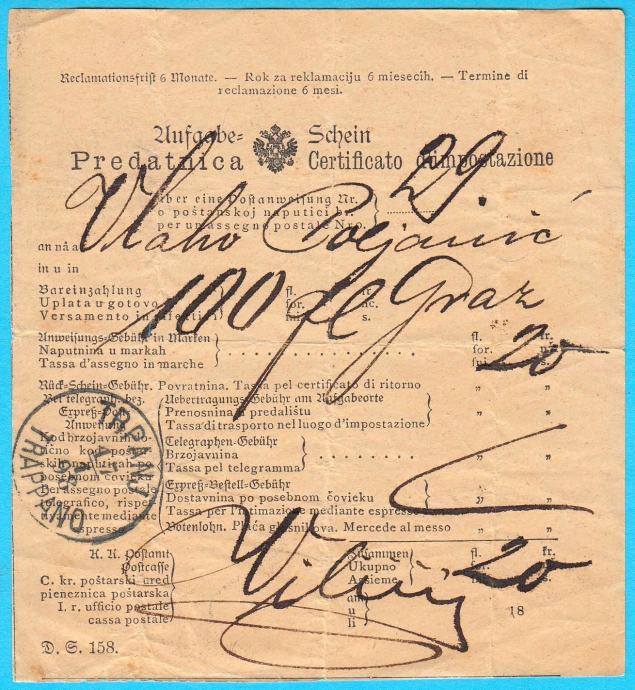 Reclamationsfrist 6 Monate. — Rok za reklamaciju 6 miesecih. — Termine di
reclamazione 6 mesi.
Aufgabe- Schein
Predatnica Certificato d'impostazione
über eine Postanweisung Nr.
o poštanskoj naputici br.
per un assegno postale Nro.
29.
an na a Vlaho Poljanić
in u in
Bareinzahlung fl. kr.
Uplata u gotovo for. nč.
Versamento in effettivi s.
100 fl Graz
Anweisungs-Gebühr in Marken fl. kr.
Naputnina u markah for.
Tassa d'assegno in marche
20
Rück-Schein-Gebühr. Povratnina. Tassa pel certificato di ritorno " "
Bei telegraph. bez.
Expreß-Post-
Anweisung
Kod brzojavnih o-
ručno
posebnom čovieku
per assegno postale
telegrafico, rispet-
tivamente mediante
espresso
Uebertragungs-Gebühr am Aufgabeorte
Prenosnina u predalištu
Tassa di trasporto nel luogo d'impostazione " "
Telegraphen-Gebühr
Brzojavnina
Tassa pel telegramma " "
Expreß-Bestell-Gebühr
Dostavnina po posebnom čovieku
Tassa per l'intimazione mediante espresso " "
Botenlohn. Plaća glasnikova. Mercede al messo " "
TRPANJ
TRAPPANO
K. K. Postamt
Postcasse
C. kr. poštarski ured
pieneznica poštarska
I. r. ufficio postale
cassa postale
Zusammen fl. kr.
Ukupno for.
Assieme s.
20
am
u
li
18
D. S. 158.